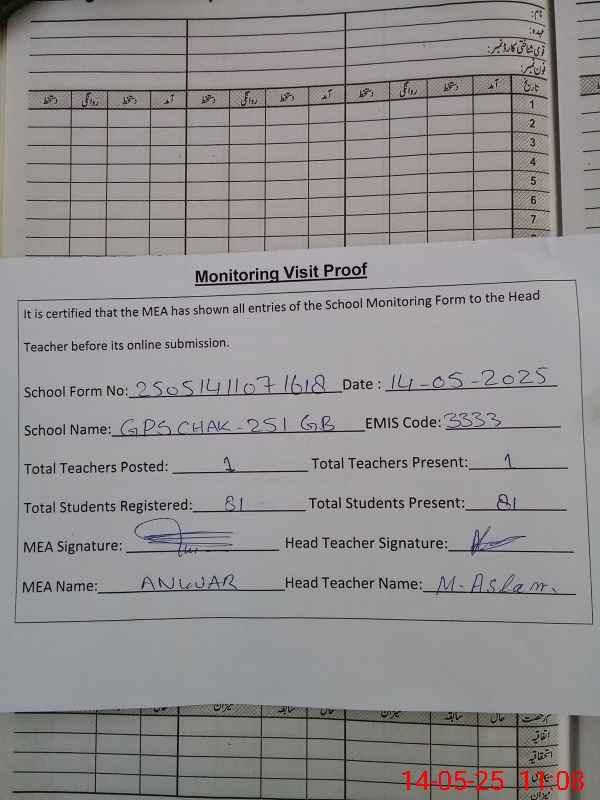 نام:
عہدہ:
قومی شناختی کارڈ نمبر:
فون نمبر:
تاریخ آمد دستخط روانگی دستخط آمد دستخط روانگی دستخط آمد دستخط روانگی دستخط
1
2
3
4
5
6
7
Monitoring Visit Proof
It is certified that the MEA has shown all entries of the School Monitoring Form to the Head
Teacher before its online submission.
School Form No: 25051411071618 Date : 14-05-2025
School Name: GPS CHAK-251 GB EMIS Code: 3333
Total Teachers Posted: 1 Total Teachers Present: 1
Total Students Registered: 81 Total Students Present: 81
MEA Signature: Head Teacher Signature:
MEA Name: ANWAR Head Teacher Name: M-Aslam.
رخصت حال سابقہ میزان حال سابقہ میزان حال
اتفاقیہ
استحقاقیہ
میزان
14-05-25 11:08